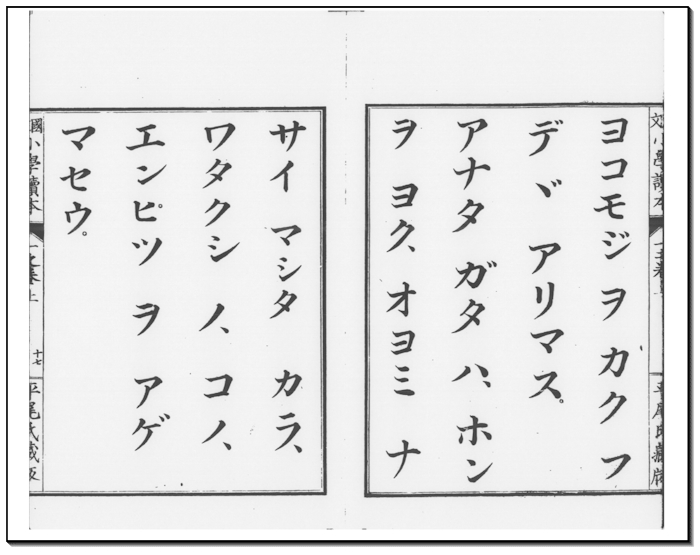 ヨコモジ ヲ カク フ
デ ヾ アリマス。
アナタ ガタ ハ、ホン
ヲ ヨク、オヨミ ナ
サイ マシタ カラ、
ワタクシ ノ、コノ、
エンピツ ヲ アゲ
マセウ。
國小學讀本 一之卷 上 十七 平尾氏藏版